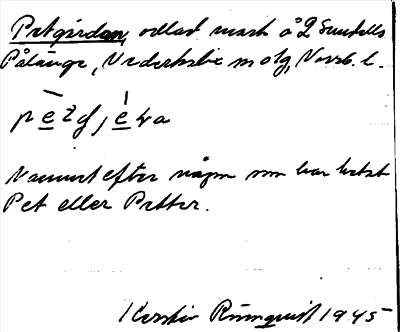 Petgärdan, odlad mark å 2 Sundells
Pålänge, Nederkalix sn o lg, Norrb. l.
Namnet efter någon som har hetat
Pet eller Petter.
Kerstin Rönnquist 1945